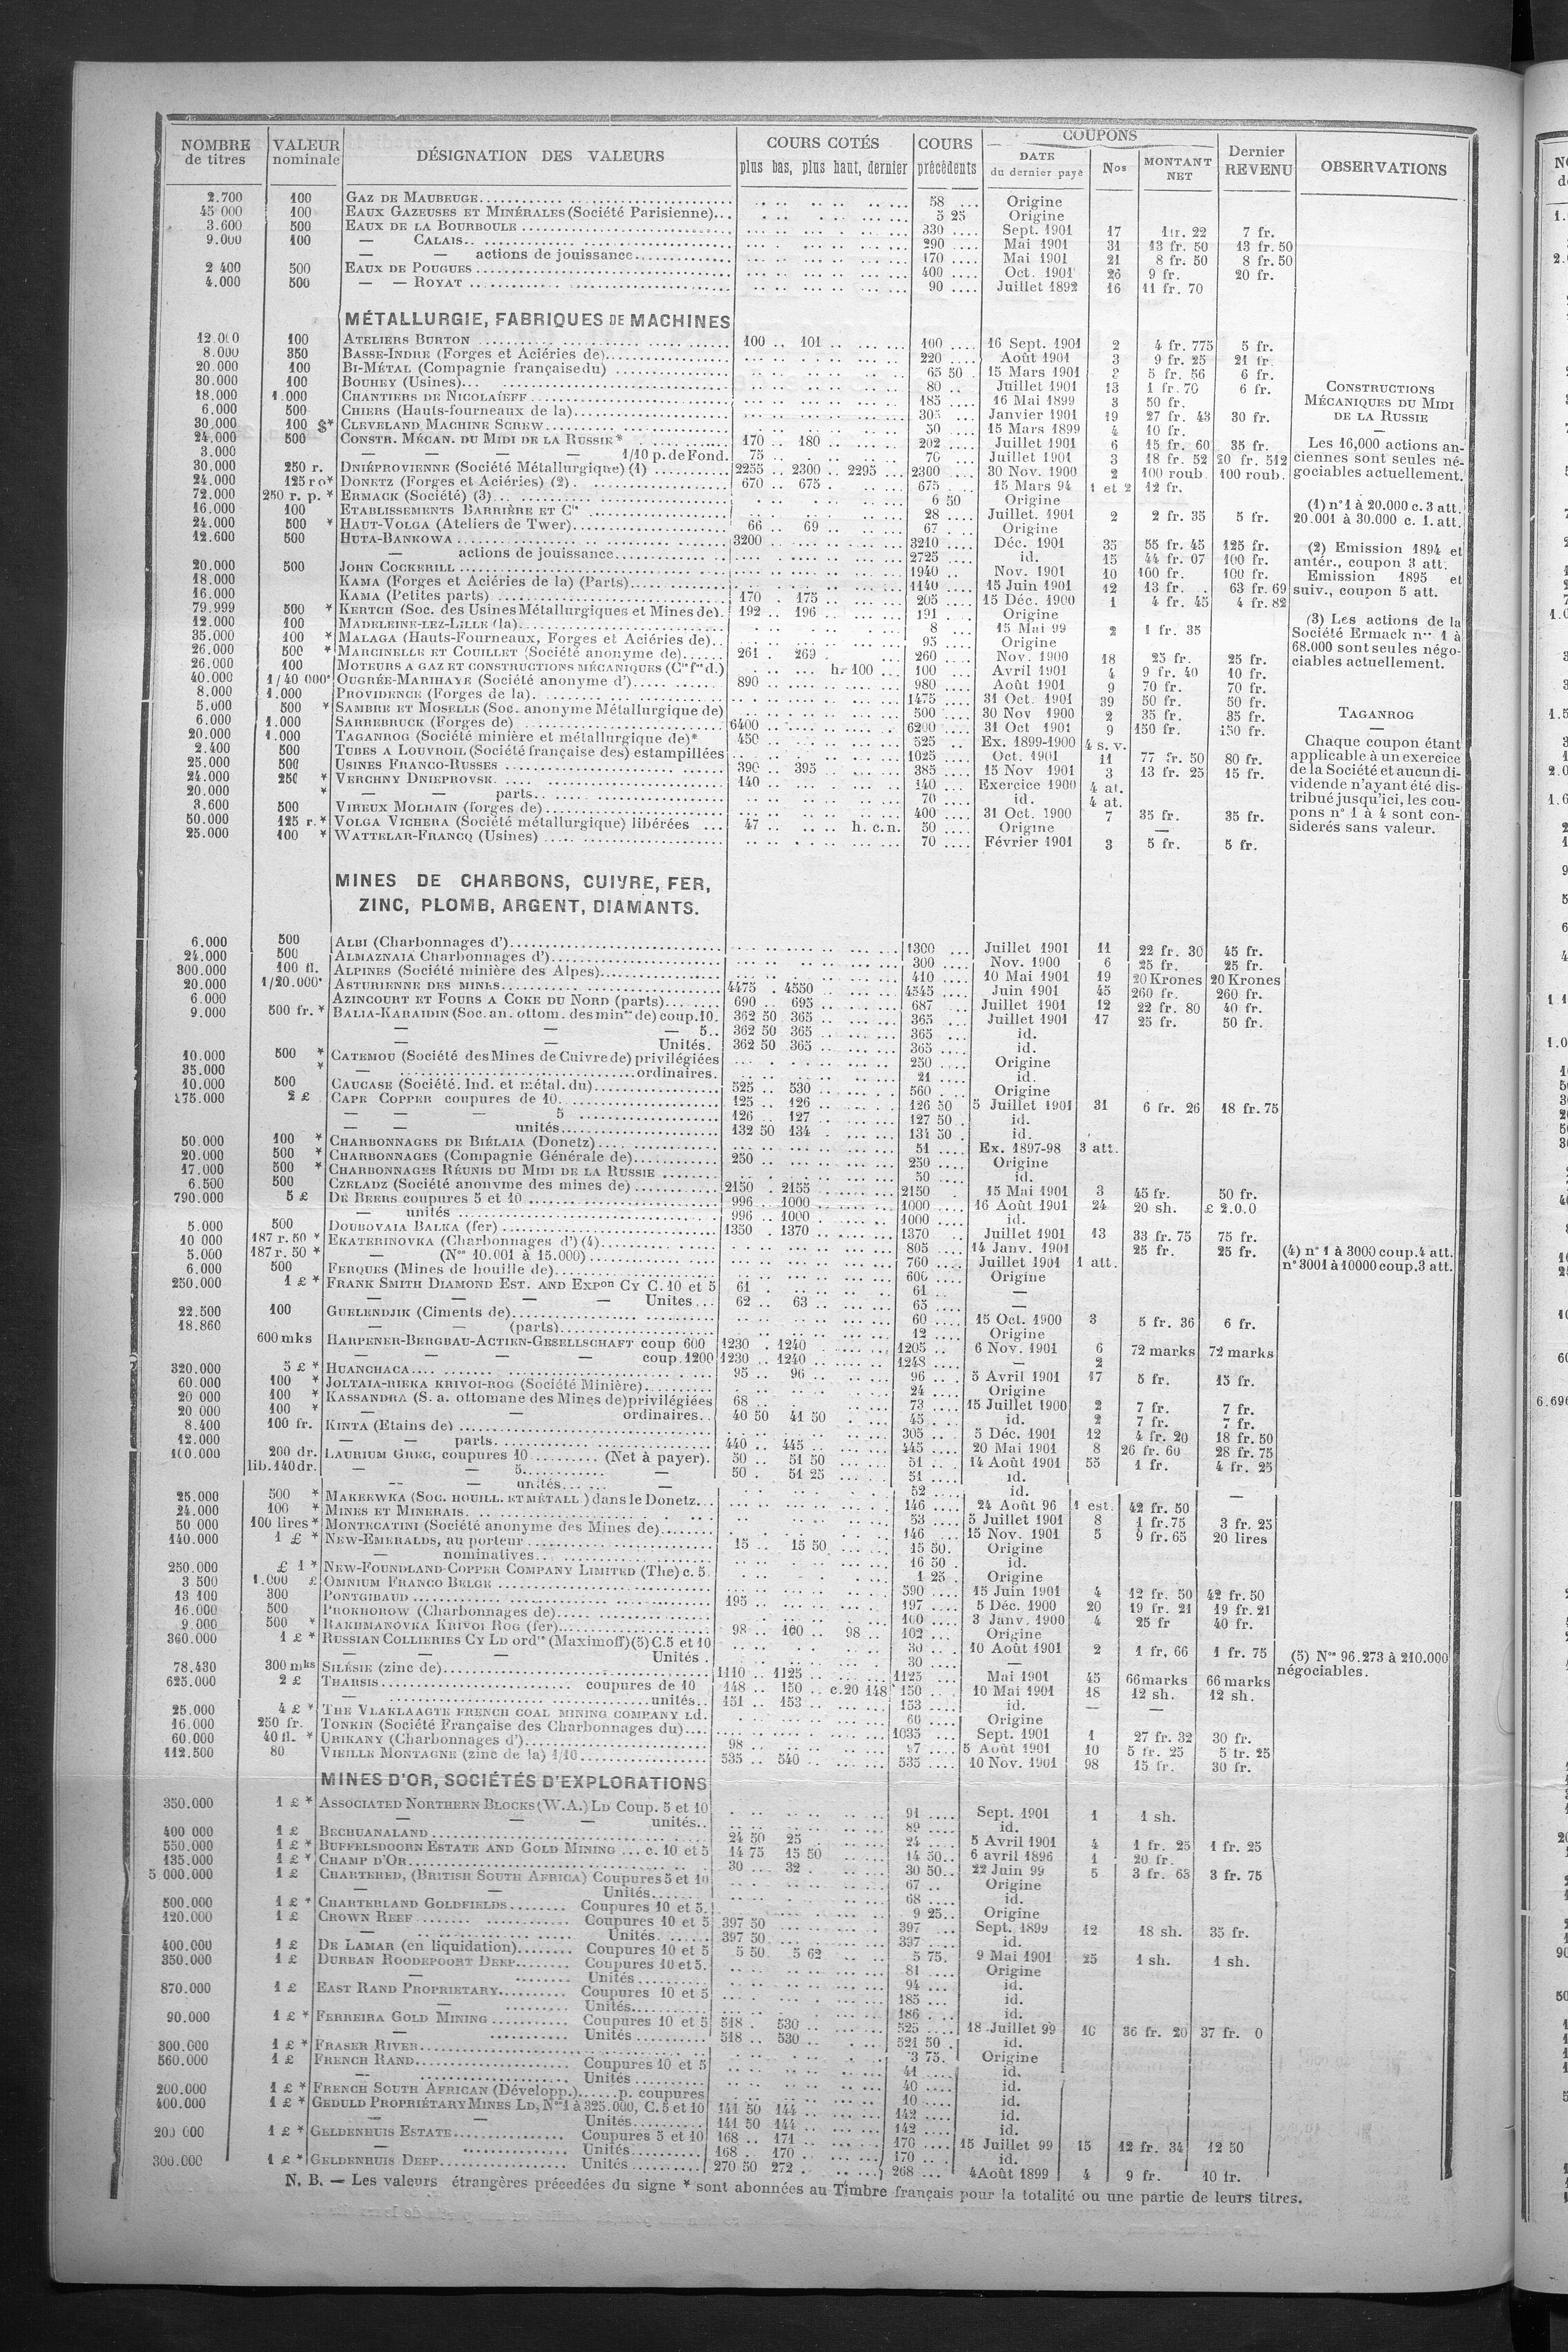 NOMBRE de titres | VALEUR nominale | DÉSIGNATION DES VALEURS | COURS COTÉS plus bas, plus haut, dernier | COURS précédents | COUPONS DATE du dernier payé | Nos | MONTANT NET | Dernier REVENU | OBSERVATIONS
2.700 100 GAZ DE MAUBEUGE 58 Origine
45 000 100 EAUX GAZEUSES ET MINÉRALES (Société Parisienne) 5 25 Origine
3.600 500 EAUX DE LA BOURBOULE 330 Sept. 1901 17 1fr. 22 7 fr.
9.000 100 — CALAIS 290 Mai 1901 31 13 fr. 50 13 fr. 50
— — actions de jouissance 170 Mai 1901 21 8 fr. 50 8 fr. 50
2 400 500 EAUX DE POUGUES 400 Oct. 1901 26 9 fr. 20 fr.
4.000 500 — — ROYAT 90 Juillet 1892 16 11 fr. 70
MÉTALLURGIE, FABRIQUES DE MACHINES
12.000 100 ATELIERS BURTON 100 101 100 16 Sept. 1901 2 4 fr. 775 5 fr.
8.000 350 BASSE-INDRE (Forges et Aciéries de) 220 Août 1901 3 9 fr. 25 21 fr.
20.000 100 BI-MÉTAL (Compagnie française du) 65 50 15 Mars 1901 3 5 fr. 56 6 fr.
30.000 100 BOUHEY (Usines) 80 Juillet 1901 13 1 fr. 70 6 fr.
18.000 1.000 CHANTIERS DE NICOLAÏEFF 185 16 Mai 1899 3 50 fr.
6.000 500 CHIERS (Hauts-fourneaux de la) 305 Janvier 1901 19 27 fr. 43 30 fr.
30.000 100 $* CLEVELAND MACHINE SCREW 50 15 Mars 1899 4 10 fr.
24.000 500 CONSTR. MÉCAN. DU MIDI DE LA RUSSIE* 170 180 202 Juillet 1901 6 15 fr. 60 35 fr.
3.000 — — — — 1/10 p. de Fond. 75 70 Juillet 1901 3 18 fr. 52 20 fr. 512
30.000 250 r. DNIÉPROVIENNE (Société Métallurgique) (1) 2255 2300 2295 2300 30 Nov. 1900 2 100 roub 100 roub.
24.000 125 ro* DONETZ (Forges et Aciéries) (2) 670 675 675 15 Mars 94 1 et 2 12 fr.
72.000 250 r. p. * ERMACK (Société) (3) 6 50 Origine
16.000 100 ETABLISSEMENTS BARRIÈRE ET Cie 28 Juillet. 1901 2 2 fr. 35 5 fr.
24.000 500 * HAUT-VOLGA (Ateliers de Twer) 66 69 67 Origine
12.600 500 HUTA-BANKOWA 3200 3210 Déc. 1901 35 55 fr. 45 125 fr.
— actions de jouissance 2725 id. 15 44 fr. 07 100 fr.
20.000 500 JOHN COCKERILL 1940 Nov. 1901 10 100 fr. 100 fr.
18.000 KAMA (Forges et Aciéries de la) (Parts) 1140 15 Juin 1901 12 13 fr. 63 fr. 69
16.000 KAMA (Petites parts) 170 175 205 15 Déc. 1900 1 4 fr. 45 4 fr. 82
79.999 500 * KERTCH (Soc. des Usines Métallurgiques et Mines de) 192 196 191 Origine
12.000 100 MADELEINE-LEZ-LILLE (la) 8 15 Mai 99 2 1 fr. 35
35.000 100 * MALAGA (Hauts-Fourneaux, Forges et Aciéries de) 95 Origine
26.000 500 * MARCINELLE ET COUILLET (Société anonyme de) 261 269 260 Nov. 1900 18 25 fr. 25 fr.
26.000 100 MOTEURS A GAZ ET CONSTRUCTIONS MÉCANIQUES (Cie fse d.) h. 100 100 Avril 1901 4 9 fr. 40 10 fr.
40.000 1/40 000* OUGRÉE-MARIHAYE (Société anonyme d') 890 980 Août 1901 9 70 fr. 70 fr.
8.000 1.000 PROVIDENCE (Forges de la) 1475 31 Oct. 1901 39 50 fr. 50 fr.
5.000 500 * SAMBRE ET MOSELLE (Soc. anonyme Métallurgique de) 500 30 Nov 1900 2 35 fr. 35 fr.
6.000 1.000 SARREBRUCK (Forges de) 6400 6200 31 Oct 1901 9 150 fr. 150 fr.
20.000 1.000 TAGANROG (Société minière et métallurgique de)* 450 525 Ex. 1899-1900 4 s. v.
2.400 500 TUBES A LOUVROIL (Société française des) estampillées 1025 Oct. 1901 11 77 fr. 50 80 fr.
25.000 500 USINES FRANCO-RUSSES 390 395 385 15 Nov 1901 3 13 fr. 25 15 fr.
24.000 250 * VERCHNY DNIEPROVSK 140 140 Exercice 1900 4 at.
20.000 * — — parts 70 id. 4 at.
3.600 500 VIREUX MOLHAIN (forges de) 400 31 Oct. 1900 7 35 fr. 35 fr.
50.000 125 r. * VOLGA VICHERA (Société métallurgique) libérées 47 h. c. n. 50 Origine —
25.000 100 * WATTELAR-FRANCQ (Usines) 70 Février 1901 3 5 fr. 5 fr.
CONSTRUCTIONS
MÉCANIQUES DU MIDI
DE LA RUSSIE
—
Les 16,000 actions an-
ciennes sont seules né-
gociables actuellement.
(1) n° 1 à 20.000 c. 3 att.
20.001 à 30.000 c. 1. att.
(2) Emission 1894 et
antér., coupon 3 att.
Emission 1895 et
suiv., coupon 5 att.
(3) Les actions de la
Société Ermack nos 1 à
68.000 sont seules négo-
ciables actuellement.
TAGANROG
—
Chaque coupon étant
applicable à un exercice
de la Société et aucun di-
vidende n'ayant été dis-
tribué jusqu'ici, les cou-
pons n° 1 à 4 sont con-
sidérés sans valeur.
MINES DE CHARBONS, CUIVRE, FER,
ZINC, PLOMB, ARGENT, DIAMANTS.
6.000 500 ALBI (Charbonnages d') 1300 Juillet 1901 11 22 fr. 30 45 fr.
24.000 500 ALMAZNAIA Charbonnages d') 300 Nov. 1900 6 25 fr. 25 fr.
300.000 100 fl. ALPINES (Société minière des Alpes) 410 10 Mai 1901 19 20 Krones 20 Krones
20.000 1/20.000* ASTURIENNE DES MINES 4475 4550 4545 Juin 1901 45 260 fr. 260 fr.
6.000 AZINCOURT ET FOURS A COKE DU NORD (parts) 690 695 687 Juillet 1901 12 22 fr. 80 40 fr.
9.000 500 fr. * BALIA-KARAIDIN (Soc. an. ottom. des mines de) coup. 10. 362 50 365 365 Juillet 1901 17 25 fr. 50 fr.
— — — 5 362 50 365 365 id.
— — Unités. 362 50 365 365 id.
10.000 500 * CATEMOU (Société des Mines de Cuivre de) privilégiées 250 Origine
35.000 * — ordinaires. 21 id.
10.000 500 CAUCASE (Société. Ind. et métal. du) 525 530 560 Origine
175.000 2 £ CAPE COPPER coupures de 10 125 126 126 50 5 Juillet 1901 31 6 fr. 26 18 fr. 75
— — — 5 126 127 127 50 id.
— — unités 132 50 134 134 50 id.
50.000 100 * CHARBONNAGES DE BIÉLAIA (Donetz) 51 Ex. 1897-98 3 att.
20.000 500 * CHARBONNAGES (Compagnie Générale de) 250 250 Origine
17.000 500 * CHARBONNAGES RÉUNIS DU MIDI DE LA RUSSIE 50 id.
6.500 500 CZELADZ (Société anonyme des mines de) 2150 2155 2150 15 Mai 1901 3 45 fr. 50 fr.
790.000 5 £ DE BEERS coupures 5 et 10 996 1000 1000 16 Août 1901 24 20 sh. £ 2.0.0
— unités 996 1000 1000 id.
5.000 500 DOUBOVAIA BALKA (fer) 1350 1370 1370 Juillet 1901 13 33 fr. 75 75 fr.
10 000 187 r. 50 * EKATERINOVKA (Charbonnages d') (4) 805 14 Janv. 1901 25 fr. 25 fr.
5.000 187 r. 50 * — (Nos 10.001 à 15.000) 760 Juillet 1901 1 att.
6.000 500 FERQUES (Mines de houille de) 600 Origine
250.000 1 £ * FRANK SMITH DIAMOND EST. AND EXPon CY C. 10 et 5 61 61 —
— — — — Unites 62 63 65 —
22.500 100 GUELENDJIK (Ciments de) 60 15 Oct. 1900 3 5 fr. 36 6 fr.
18.860 — — (parts) 12 Origine
600 mks HARPENER-BERGBAU-ACTIEN-GESELLSCHAFT coup 600 1230 1240 1205 6 Nov. 1901 6 72 marks 72 marks
— — — — coup. 1200 1230 1240 1248 — 2
320.000 5 £ * HUANCHACA 95 96 96 5 Avril 1901 17 5 fr. 15 fr.
60.000 100 * JOLTAIA-RIEKA KRIVOI-ROG (Société Minière) 24 Origine
20 000 100 * KASSANDRA (S. a. ottomane des Mines de) privilégiées 68 73 15 Juillet 1900 2 7 fr. 7 fr.
20 000 100 * — — ordinaires. 40 50 41 50 45 id. 2 7 fr. 7 fr.
8.400 100 fr. KINTA (Etains de) 305 5 Déc. 1901 12 4 fr. 20 18 fr. 50
12.000 — — parts 440 445 445 20 Mai 1901 8 26 fr. 60 28 fr. 75
100.000 200 dr. LAURIUM GREC, coupures 10 (Net à payer). 50 51 50 51 14 Août 1901 55 1 fr. 4 fr. 25
lib. 140 dr. — — 5 — 50 51 25 51 id.
— — unités 52 id. —
25.000 500 * MAKEEWKA (SOC. HOUILL. ET MÉTALL ) dans le Donetz 146 24 Août 96 1 est. 42 fr. 50
24.000 100 * MINES ET MINERAIS 53 5 Juillet 1901 8 1 fr. 75 3 fr. 25
50 000 100 lires * MONTECATINI (Société anonyme des Mines de) 146 15 Nov. 1901 5 9 fr. 65 20 lires
140.000 1 £ * NEW-EMERALDS, au porteur 15 15 50 15 50 Origine
— nominatives 16 50 id.
250.000 £ 1 * NEW-FOUNDLAND-COPPER COMPANY LIMITED (The) c. 5 1 25 Origine
3 500 1.000 £ OMNIUM FRANCO BELGE 590 15 Juin 1901 4 12 fr. 50 42 fr. 50
13 100 300 PONTGIBAUD 195 197 5 Déc. 1900 20 19 fr. 21 19 fr. 21
16.000 500 PROKHOROW (Charbonnages de) 100 3 Janv. 1900 4 25 fr 40 fr.
9.000 500 * RAKHMANOVKA KRIVOI ROG (fer) 98 100 98 102 Origine
360.000 1 £ * RUSSIAN COLLIERIES CY LD ordres (Maximoff) (5) C. 5 et 10 30 10 Août 1901 2 1 fr. 66 1 fr. 75
— — — Unités 30 —
78.430 300 mks SILÉSIE (zinc de) 1110 1125 1125 Mai 1901 45 66 marks 66 marks
625.000 2 £ THARSIS coupures de 10 148 150 c. 20 148 150 10 Mai 1901 18 12 sh. 12 sh.
— unités 151 153 153 id. — —
25.000 4 £ * THE VLAKLAAGTE FRENCH COAL MINING COMPANY Ld. 60 Origine
16.000 250 fr. TONKIN (Société Française des Charbonnages du) 1035 Sept. 1901 1 27 fr. 32 30 fr.
60.000 40 fl. * URIKANY (Charbonnages d') 98 97 5 Août 1901 10 5 fr. 25 5 fr. 25
112.500 80 VIEILLE MONTAGNE (zinc de la) 1/10 535 540 535 10 Nov. 1901 98 15 fr. 30 fr.
(4) n° 1 à 3000 coup. 4 att.
n° 3001 à 10000 coup. 3 att.
(5) Nos 96.273 à 210.000
négociables.
MINES D'OR, SOCIÉTÉS D'EXPLORATIONS
350.000 1 £ * ASSOCIATED NORTHERN BLOCKS (W.A.) LD Coup. 5 et 10 91 Sept. 1901 1 1 sh.
— — unités 89 id.
400 000 1 £ BECHUANALAND 24 50 25 24 5 Avril 1901 4 1 fr. 25 1 fr. 25
550.000 1 £ * BUFFELSDOORN ESTATE AND GOLD MINING c. 10 et 5 14 75 15 50 14 50 6 avril 1896 1 20 fr.
135.000 1 £ * CHAMP D'OR 30 32 30 50 22 Juin 99 5 3 fr. 63 3 fr. 75
5 000.000 1 £ CHARTERED, (BRITISH SOUTH AFRICA) Coupures 5 et 10 67 Origine
— — Unités 68 id.
500.000 1 £ * CHARTERLAND GOLDFIELDS Coupures 10 et 5. 9 25 Origine
120.000 1 £ CROWN REEF Coupures 10 et 5 397 50 397 Sept. 1899 12 18 sh. 35 fr.
— Unités 397 50 397 id.
400.000 1 £ DE LAMAR (en liquidation) Coupures 10 et 5 5 50 5 62 5 75 9 Mai 1901 25 1 sh. 1 sh.
350.000 1 £ DURBAN ROODEPOORT DEEP Coupures 10 et 5. 81 Origine
— Unités 94 id.
870.000 1 £ EAST RAND PROPRIETARY Coupures 10 et 5 185 id.
— Unités 186 id.
90.000 1 £ * FERREIRA GOLD MINING Coupures 10 et 5 518 530 525 18 Juillet 99 10 36 fr. 20 37 fr. 0
— Unités 518 530 521 50 id.
300.000 1 £ * FRASER RIVER 3 75 Origine
560.000 1 £ FRENCH RAND Coupures 10 et 5 41 id.
— Unités 40 id.
200.000 1 £ * FRENCH SOUTH AFRICAN (Développ.) p. coupures 10 id.
400.000 1 £ * GEDULD PROPRIÉTARY MINES LD, Nos 1 à 325.000, C. 5 et 10 141 50 144 142 id.
— — Unités 141 50 144 142 id.
200 000 1 £ * GELDENHUIS ESTATE Coupures 5 et 10 168 171 170 15 Juillet 99 15 12 fr. 34 12 50
— Unités 168 170 170 id.
300.000 1 £ * GELDENHUIS DEEP Unités 270 50 272 268 4 Août 1899 4 9 fr. 10 fr.
N. B. — Les valeurs étrangères précedées du signe * sont abonnées au Timbre français pour la totalité ou une partie de leurs titres.